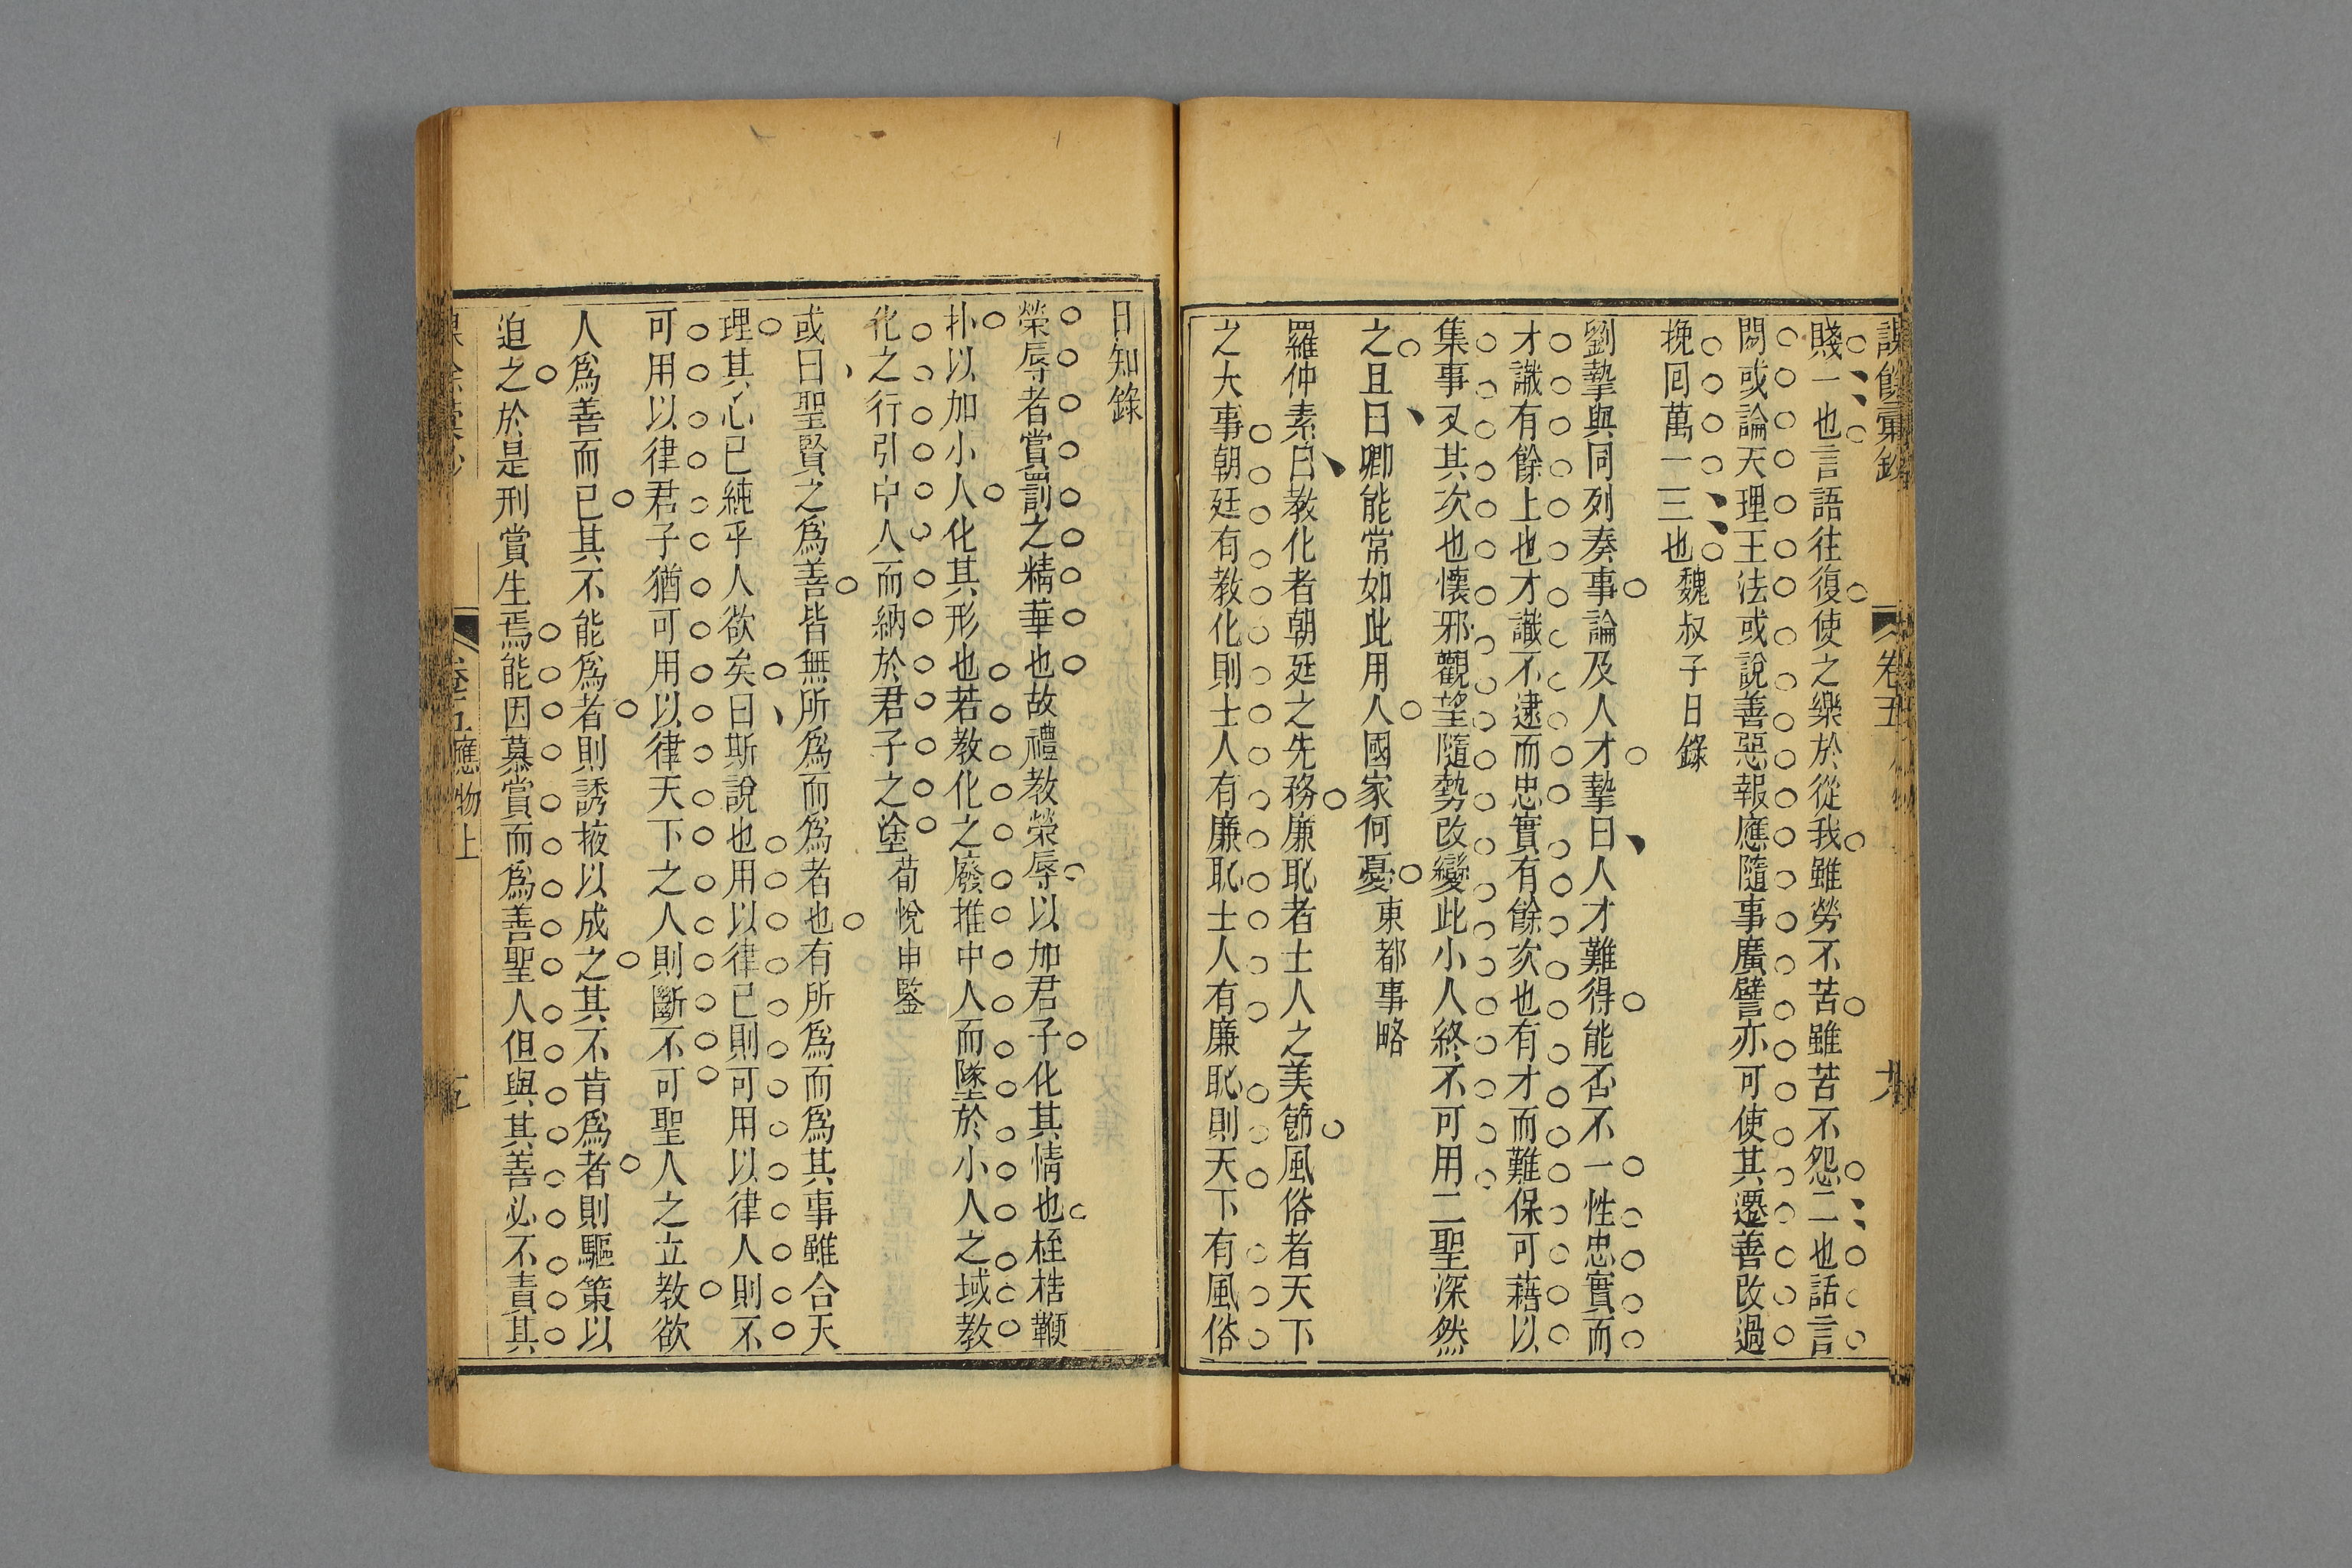 課餘彙鈔 卷五 九
賤一也言語往復使之樂於從我雖勞不苦雖苦不怨二也話言
間或論天理王法或說善惡報應隨事廣譬亦可使其遷善改過
挽回萬一三也魏叔子日錄
劉摯與同列奏事論及人才摯曰人才難得能否不一性忠實而
才識有餘上也才識不逮而忠實有餘次也有才而難保可藉以
集事又其次也懷邪觀望隨勢改變此小人終不可用二聖深然
之且曰卿能常如此用人國家何憂東都事略
羅仲素曰教化者朝廷之先務廉恥者士人之美節風俗者天下
之大事朝廷有教化則士人有廉恥士人有廉恥則天下有風俗
日知錄
榮辱者賞罰之精華也故禮教榮辱以加君子化其情也桎梏鞭
扑以加小人化其形也若教化之廢推中人而墜於小人之域教
化之行引中人而納於君子之塗荀悅申鑒
或曰聖賢之為善皆無所為而為者也有所為而為其事雖合天
理其心已純乎人欲矣曰斯說也用以律己則可用以律人則不
可用以律君子猶可用以律天下之人則斷不可聖人之立教欲
人為善而已其不能為者則誘掖以成之其不肯為者則驅策以
迫之於是刑賞生焉能因慕賞而為善聖人但與其善必不責其
卷五應物上